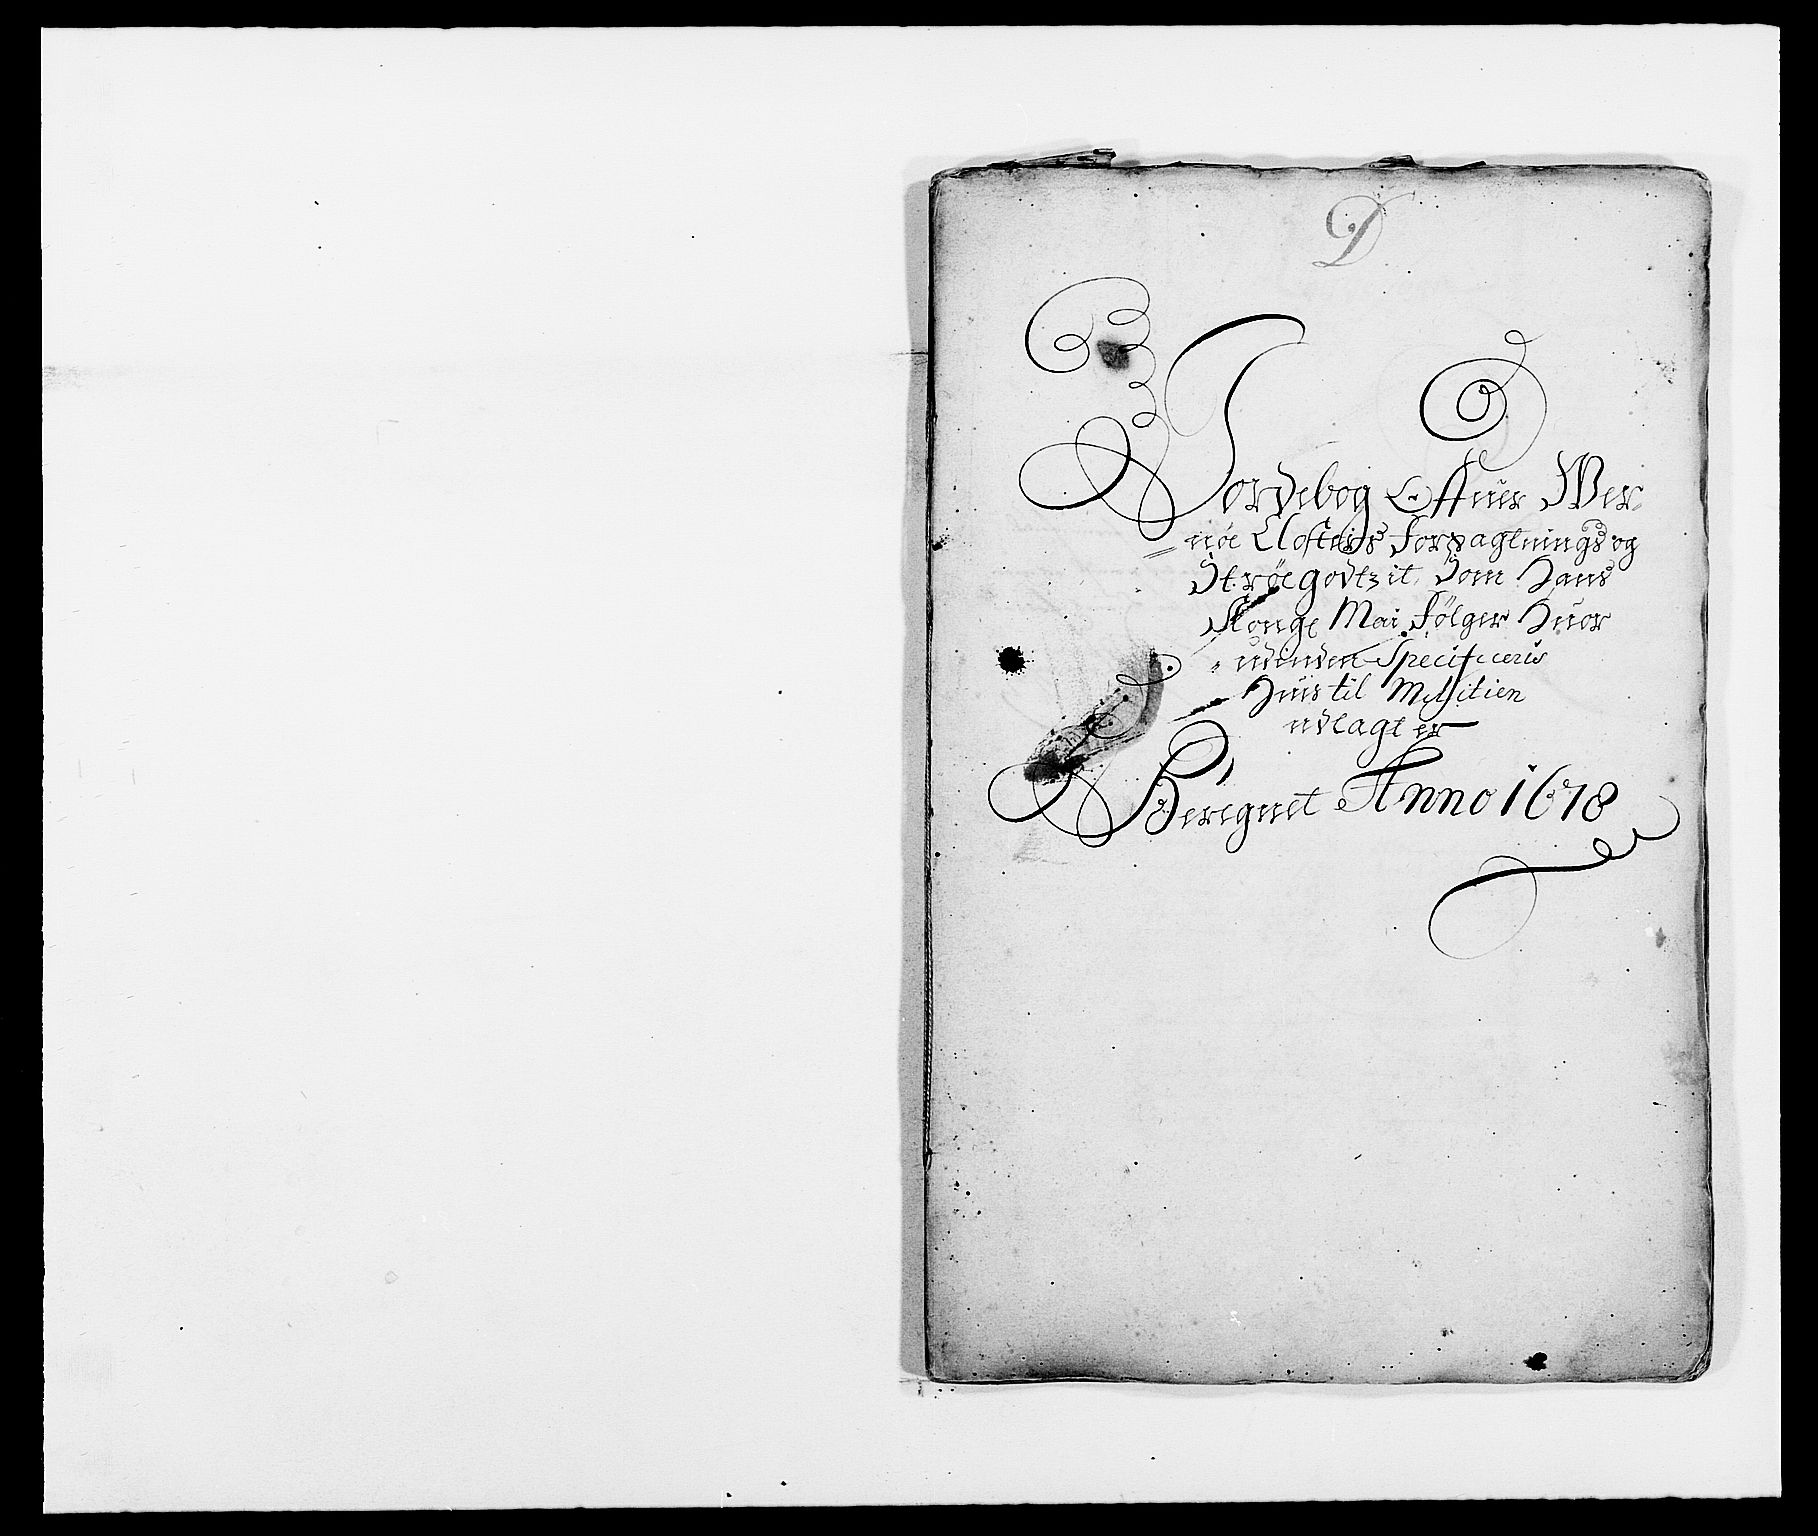 D
Jordebog Offuer Wer-
nøe Closters Forpagtnings og
Strøegodtzit, Som Hans
Konge Mai Følger Huor
udinden Specificeris
Huis til Militien
udlagt er
Beregnet Anno 1678